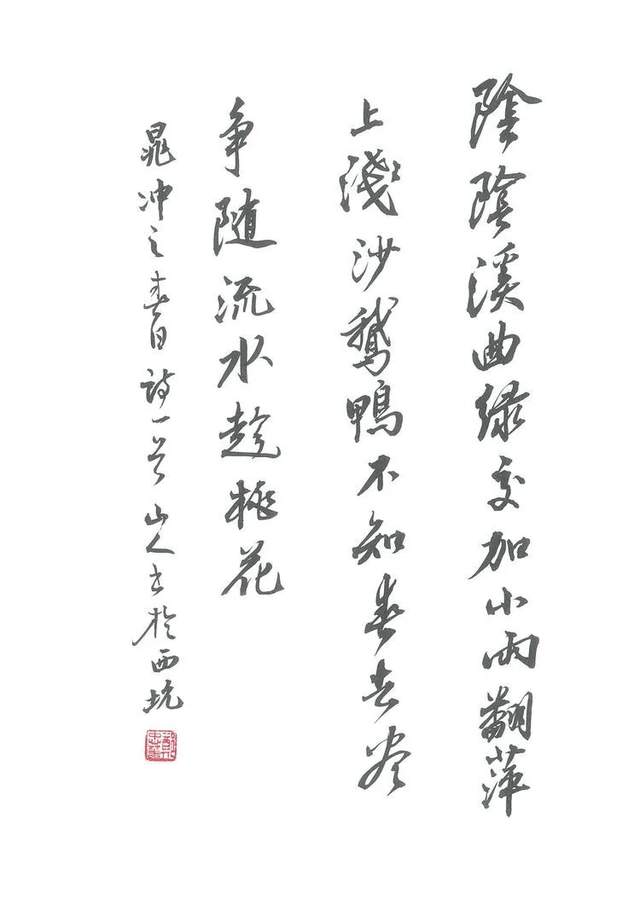 陰陰溪曲绿交加小雨翻萍
上淺沙鵝鴨不知春去尽
争随流水趁桃花
晁冲之春日詩一首山人书於西坑